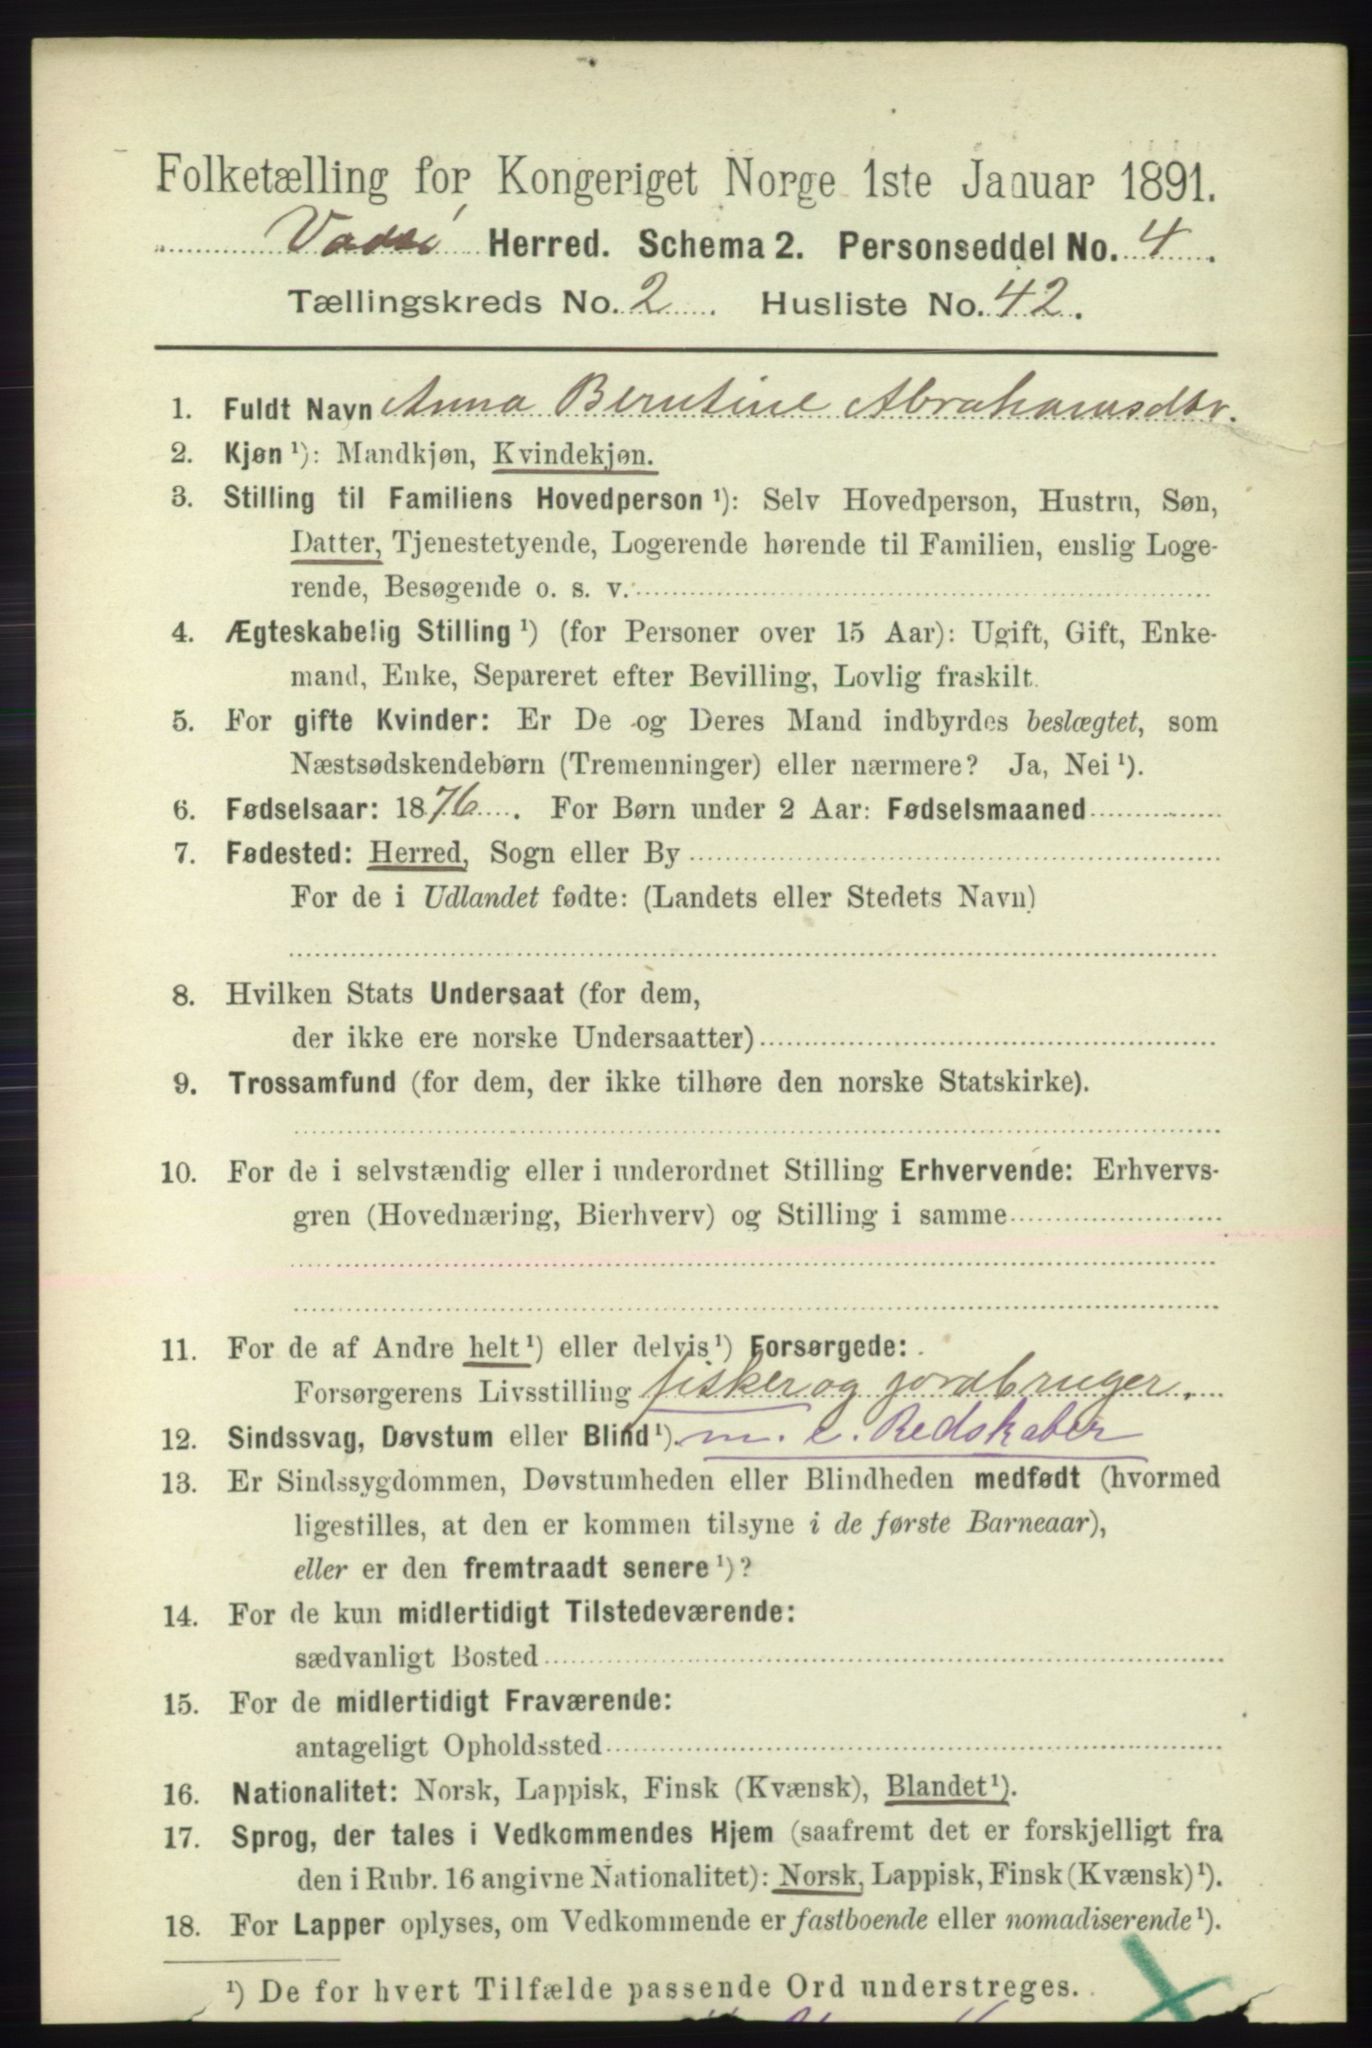 Folketælling for Kongeriget Norge 1ste Januar 1891.
Vadsö Herred. Schema 2. Personseddel No. 4.
Tællingskreds No. 2. Husliste No. 42.
1. Fuldt Navn Anna Berntine Abrahamsdtr.
2. Kjøn ¹): Mandkjøn, Kvindekjøn.
3. Stilling til Familiens Hovedperson ¹): Selv Hovedperson, Hustru, Søn,
Datter, Tjenestetyende, Logerende hørende til Familien, enslig Loge-
rende, Besøgende o. s. v.
4. Ægteskabelig Stilling ¹) (for Personer over 15 Aar): Ugift, Gift, Enke-
mand, Enke, Separeret efter Bevilling, Lovlig fraskilt.
5. For gifte Kvinder: Er De og Deres Mand indbyrdes beslægtet, som
Næstsødskendebørn (Tremenninger) eller nærmere? Ja, Nei ¹).
6. Fødselsaar: 1876. For Børn under 2 Aar: Fødselsmaaned
7. Fødested: Herred, Sogn eller By
For de i Udlandet fødte: (Landets eller Stedets Navn)
8. Hvilken Stats Undersaat (for dem,
der ikke ere norske Undersaatter)
9. Trossamfund (for dem, der ikke tilhøre den norske Statskirke).
10. For de i selvstændig eller i underordnet Stilling Erhvervende: Erhvervs-
gren (Hovednæring, Bierhverv) og Stilling i samme
11. For de af Andre helt ¹) eller delvis ¹) Forsørgede:
Forsørgerens Livsstilling fisker og jordbruger.
12. Sindssvag, Døvstum eller Blind ¹). m. e. Redskaber
13. Er Sindssygdommen, Døvstumheden eller Blindheden medfødt (hvormed
ligestilles, at den er kommen tilsyne i de første Barneaar),
eller er den fremtraadt senere ¹)?
14. For de kun midlertidigt Tilstedeværende:
sædvanligt Bosted
15. For de midlertidigt Fraværende:
antageligt Opholdssted
16. Nationalitet: Norsk, Lappisk, Finsk (Kvænsk), Blandet ¹).
17. Sprog, der tales i Vedkommendes Hjem (saafremt det er forskjelligt fra
den i Rubr. 16 angivne Nationalitet): Norsk, Lappisk, Finsk (Kvænsk) ¹).
18. For Lapper oplyses, om Vedkommende er fastboende eller nomadiserende ¹).
¹) De for hvert Tilfælde passende Ord understreges.